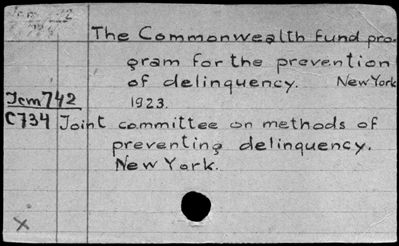 The Commonwealth Fund pro-
gram for the prevention
of delinquency. New York
1923.
Icm742
C734 Joint committee on methods of
preventing delinquency.
New York.
x